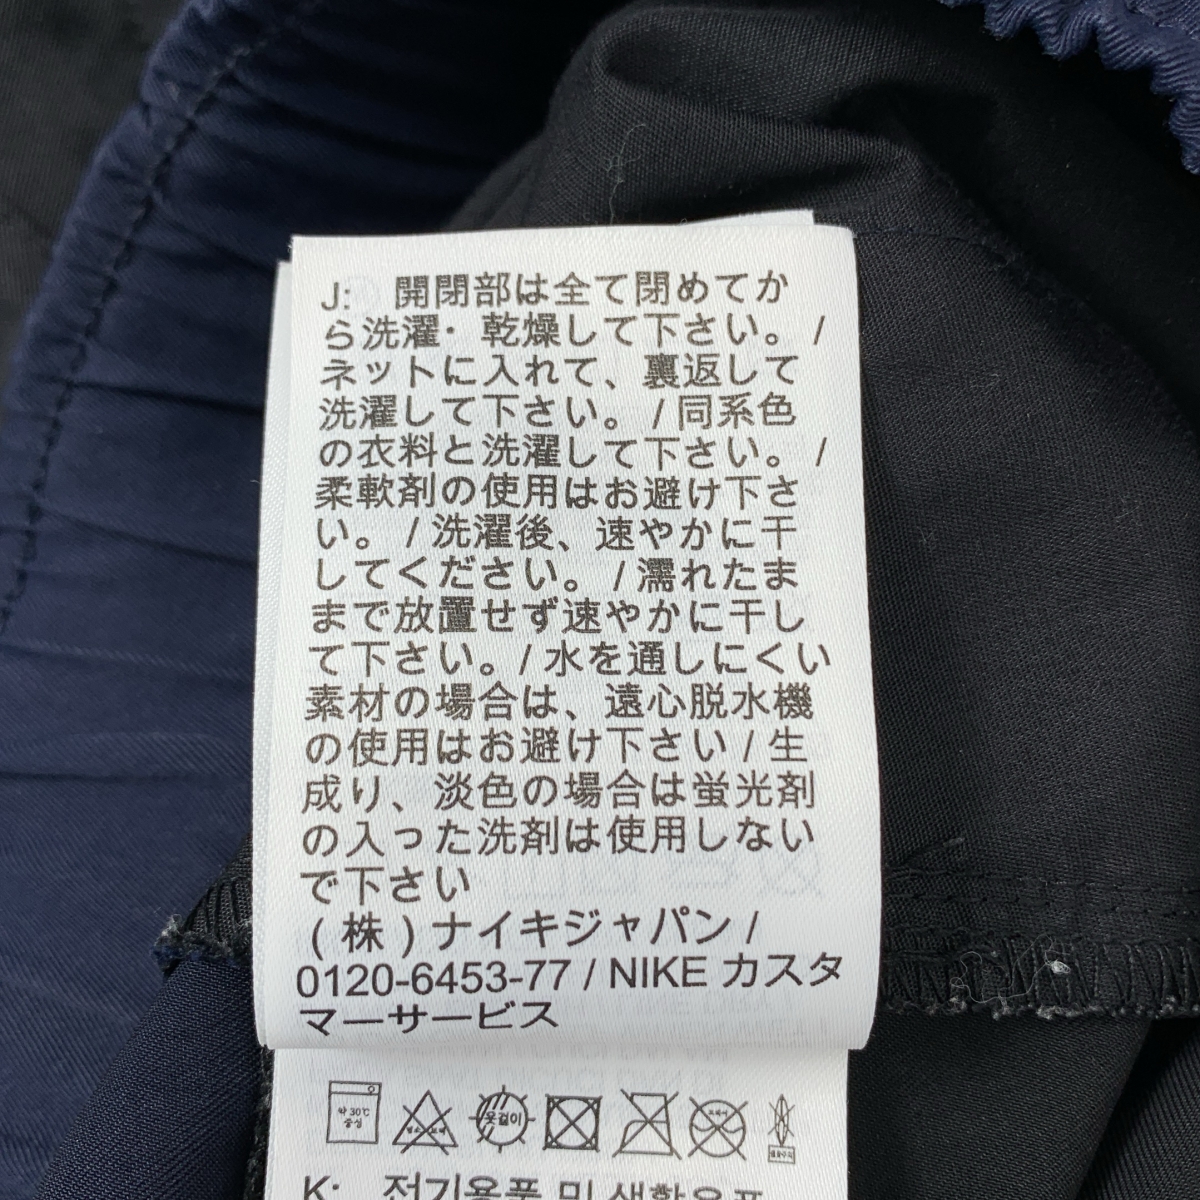 J: 開閉部は全て閉めてか
ら洗濯・乾燥して下さい。 /
ネットに入れて、裏返して
洗濯して下さい。 / 同系色
の衣料と洗濯して下さい。 /
柔軟剤の使用はお避け下さ
い。 / 洗濯後、速やかに干
してください。 / 濡れたま
まで放置せず速やかに干し
て下さい。/ 水を通しにくい
素材の場合は、遠心脱水機
の使用はお避け下さい / 生
成り、淡色の場合は蛍光剤
の入った洗剤は使用しない
で下さい
(株) ナイキジャパン /
0120-6453-77 / NIKE カスタ
マーサービス
약 30℃
중성
옷걸이
드라이
K: 전기용품 및 생활용품